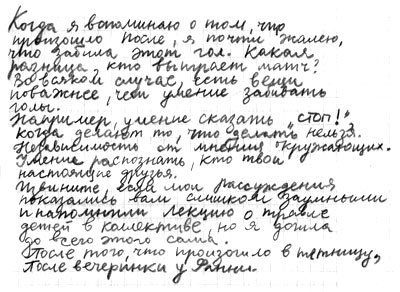 Когда я вспоминаю о том, что
произошло после, я почти жалею,
что забила этот гол. Какая
разница, кто выиграет матч?
Во всяком случае, есть вещи
поважнее, чем умение забивать
голы.
Например, умение сказать "стоп!"
когда делают то, что делать нельзя.
Независимость от мнения окружающих.
Умение распознать, кто твои
настоящие друзья.
Извините, если мои рассуждения
показались вам слишком заумными
и напомнили лекцию о травле
детей в коллективе, но я дошла
до всего этого сама.
После того, что произошло в пятницу,
после вечеринки у Фанни.